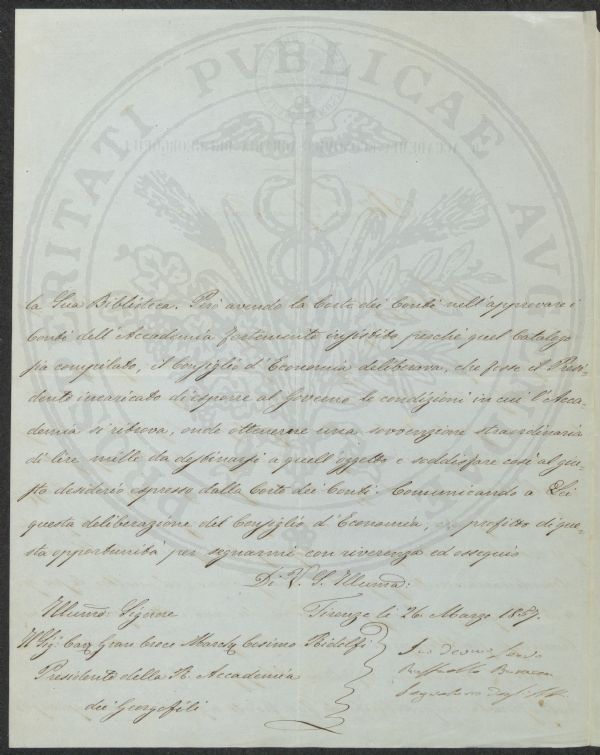 PROSPERITATI PVBLICAE AVGENDAE
la Sua Biblioteca. Però avendo la Corte dei Conti nell'approvare i
Conti dell'Accademia fortemente insistito perchè quel Catalogo
sia compilato, il Consiglio d'Economia deliberava, che fosse il Presi-
dente incaricato di esporre al Governo le condizioni in cui l'Acca-
demia si ritrova, onde ottenerne una sovvenzione straordinaria
di lire mille da destinarsi a quell'oggetto e soddisfare così al giu-
sto desiderio espresso dalla Corte dei Conti. Comunicando a Lei
questa deliberazione del Consiglio d'Economia, profitto di que-
sta opportunità per segnarmi con riverenza ed ossequio
Di V. S. Illuma:
Illumo: Signore
Firenze li 26. Marzo 1857.
Il Sig: Cav: Gran Croce March: Cosimo Ridolfi
Presidente della R. Accademia
dei Georgofili
Suo Devmo Servo
Raffaello
Segretario degli Atti